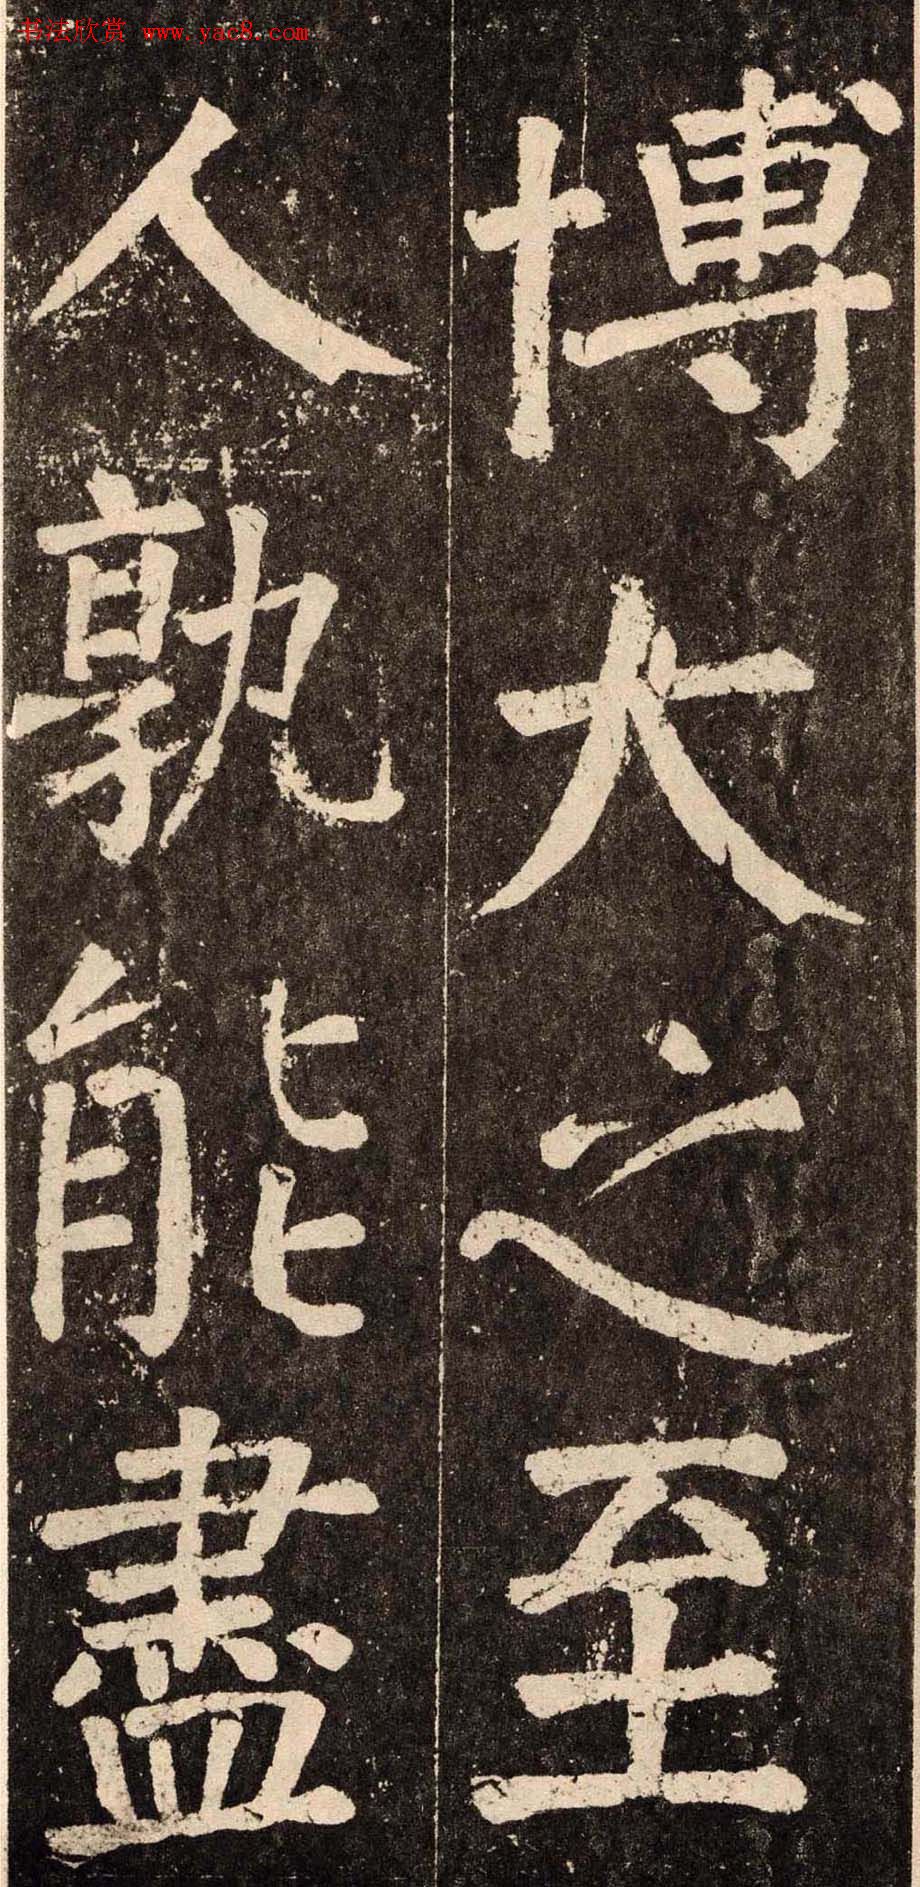 书法欣赏 www.yac8.com
博大之至
人孰能盡